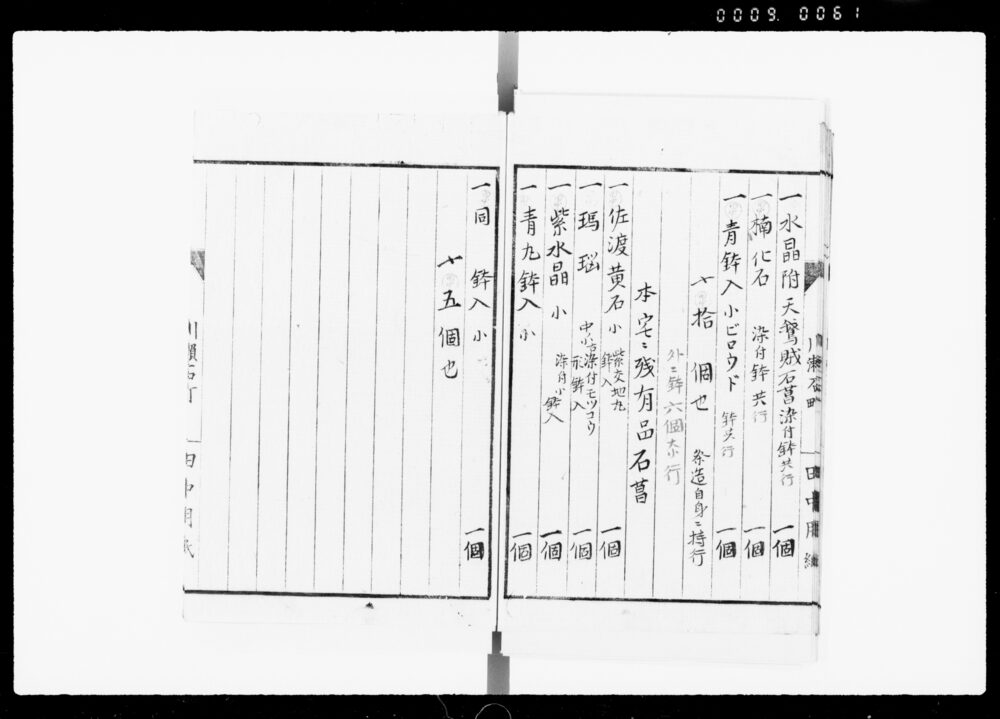 0009.0061
一 水晶附 天鵞賊石菖染付鉢共行 一個
一 楠化石 染付鉢共行 一個
一 青鉢入 小ビロウド 鉢共行 一個
〆拾個也 祭造自身ニ持行
外ニ鉢六個大小行
本宅ニ残有品石菖
一 佐渡黄石 小 紫交地丸鉢入 一個
一 瑪瑙 中小 染付モツコウ 鉢入 一個
一 紫水晶 小 染付小鉢入 一個
一 青丸鉢入 小 一個
一 同 鉢入 小 一個
〆五個也
川瀬石町
田中用紙